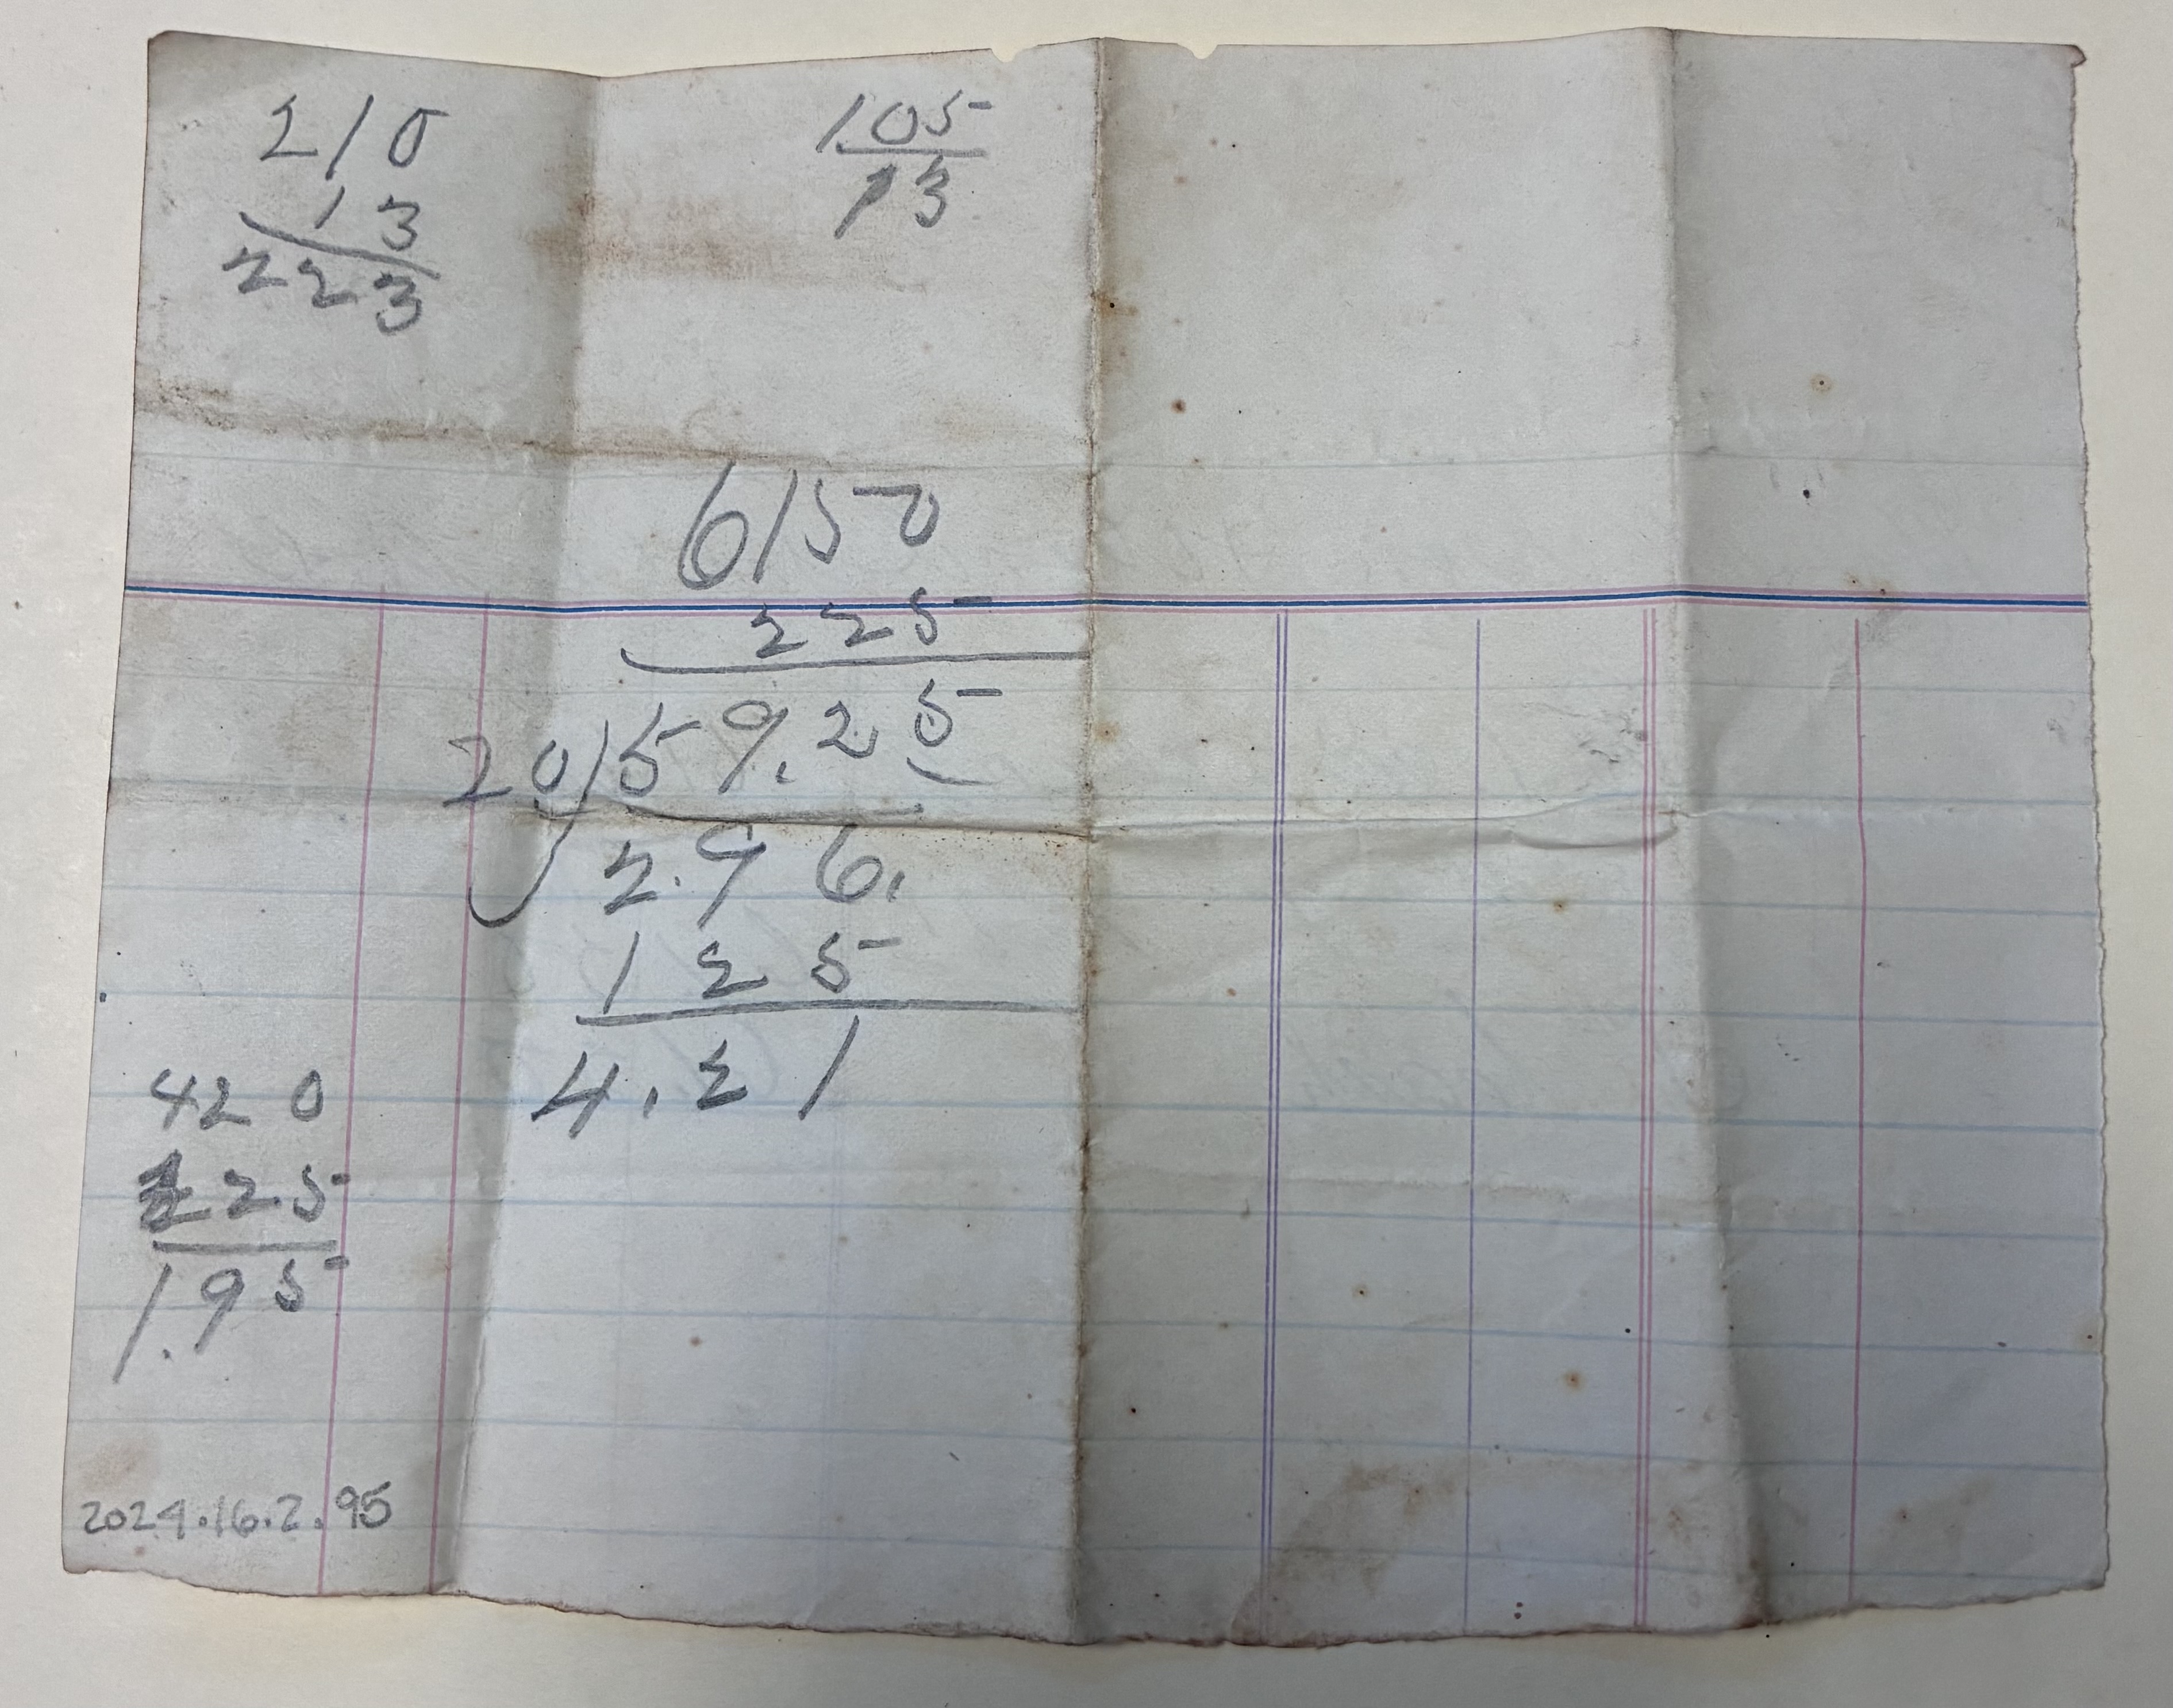 210
13
223
105
13
6150
225
20)59.25
2.96.
125
4.21
420
225
1.95
2024.16.2.95